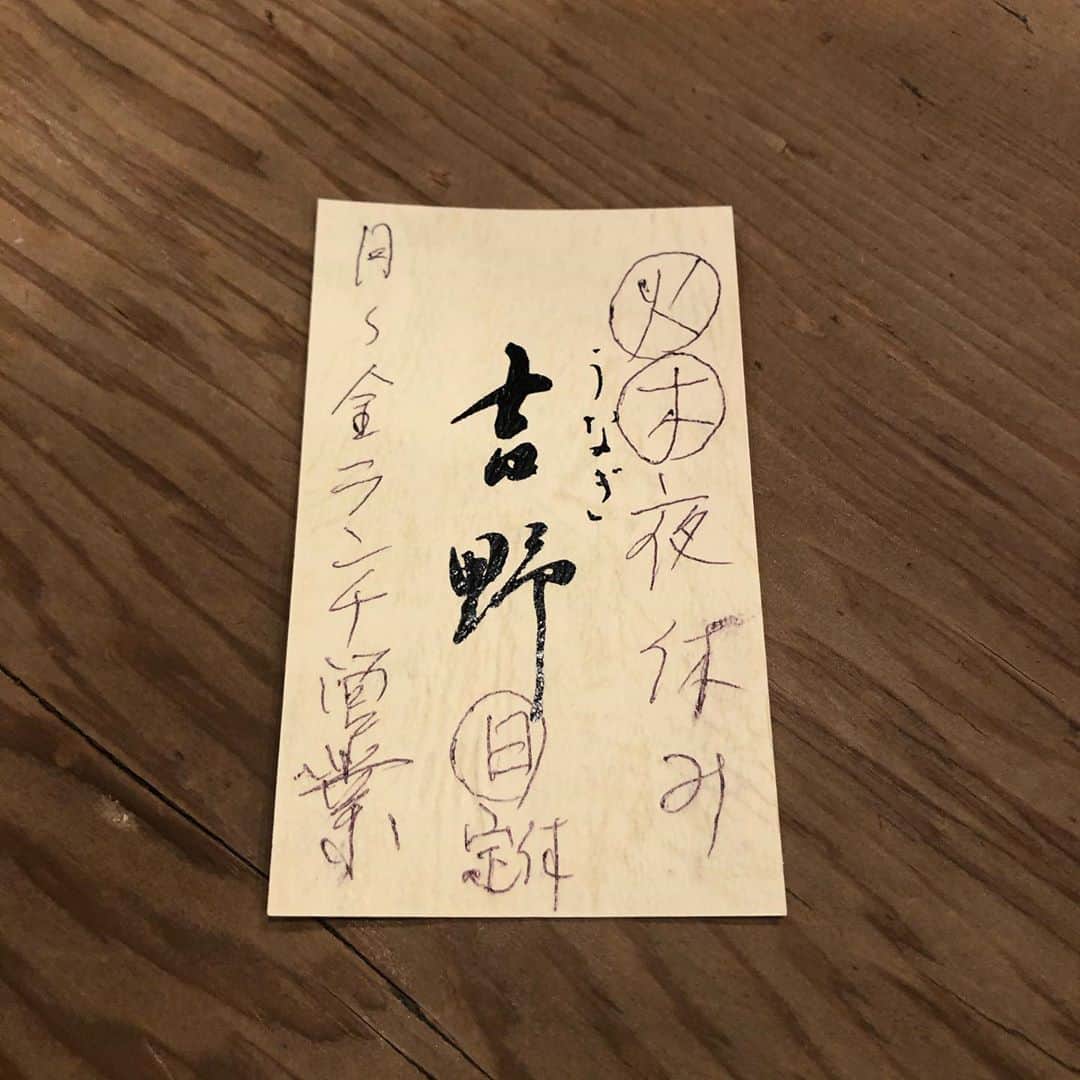 火木夜休み
うなぎ
吉野
日定休
月〜金ランチ営業